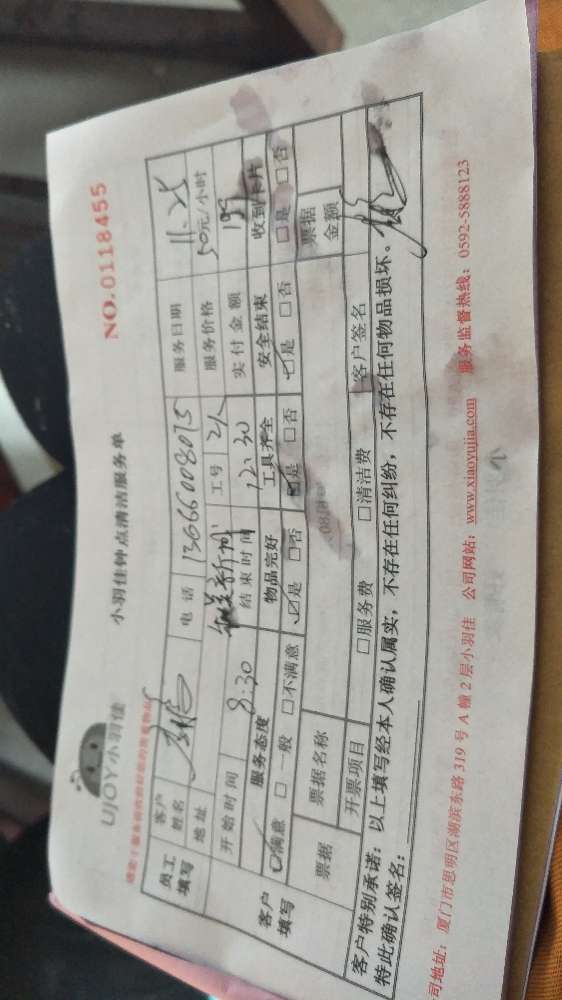 UJOY小羽佳
小羽佳钟点清洁服务单
NO.0118455
员工填写 客户姓名 电话 13666008015 服务日期 11.25
地址 工号 2人 服务价格 50元/小时
开始时间 8:30 结束时间 12:30 实付金额
客户填写 服务态度 物品完好 工具齐全 安全结束 收到卡片
☑满意 □一般 □不满意 ☑是 □否 ☑是 □否 ☑是 □否 □是 □否
票据 票据名称 票据金额
开票项目 □服务费 □清洁费 客户签名
客户特别承诺:以上填写经本人确认属实,不存在任何纠纷,不存在任何物品损坏。
特此确认签名:
司地址:厦门市思明区湖滨东路319号A幢2层小羽佳 公司网站:www.xiaoyujia.com 服务监督热线:0592-5888123